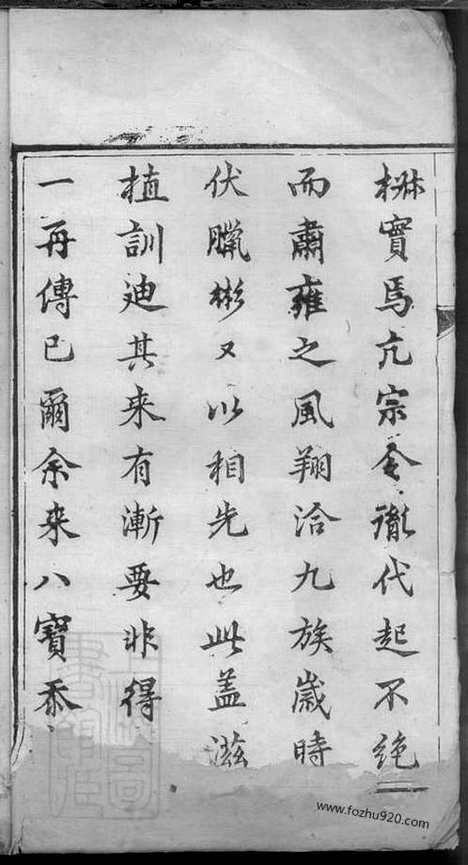 楙實焉亢宗令諏代起不絶
而肅雍之風翔洽九族歲時
伏臘彬又以相先也此蓋滋
植訓迪其来有漸要非得
一再傳已爾余来八寶忝
www.fozhu920.com